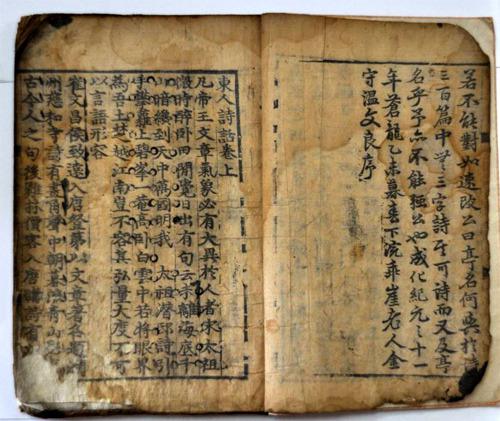 若不能對如遠改公曰亭名何與於詩
三百篇中三字詩至可詩而又及亭
名乎予亦不能強公也成化紀元之十一
年蒼龍乙未暮春下浣乖崖老人金
守溫文良序
東人詩話卷上
凡帝王文章氣象必有大異於人者宋太祖
微時醉臥田間覺日出有句云未離海底千
山暗纔到天中萬國明我 太祖潛邸詩引
手攀蘿上碧峯一菴高臥白雲中若將眼界
為吾土楚越江南豈不容其弘量大度不可
以言語形容
崔文昌侯致遠入唐登第以文章著名題潤
州慈和寺詩有畫角聲中朝暮浪青山影
古今人之句後雞林賈客入唐購詩有以